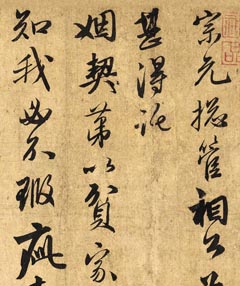 宗元揔管相公
甚得託
姻契第以貧家
知我必不瑕疵